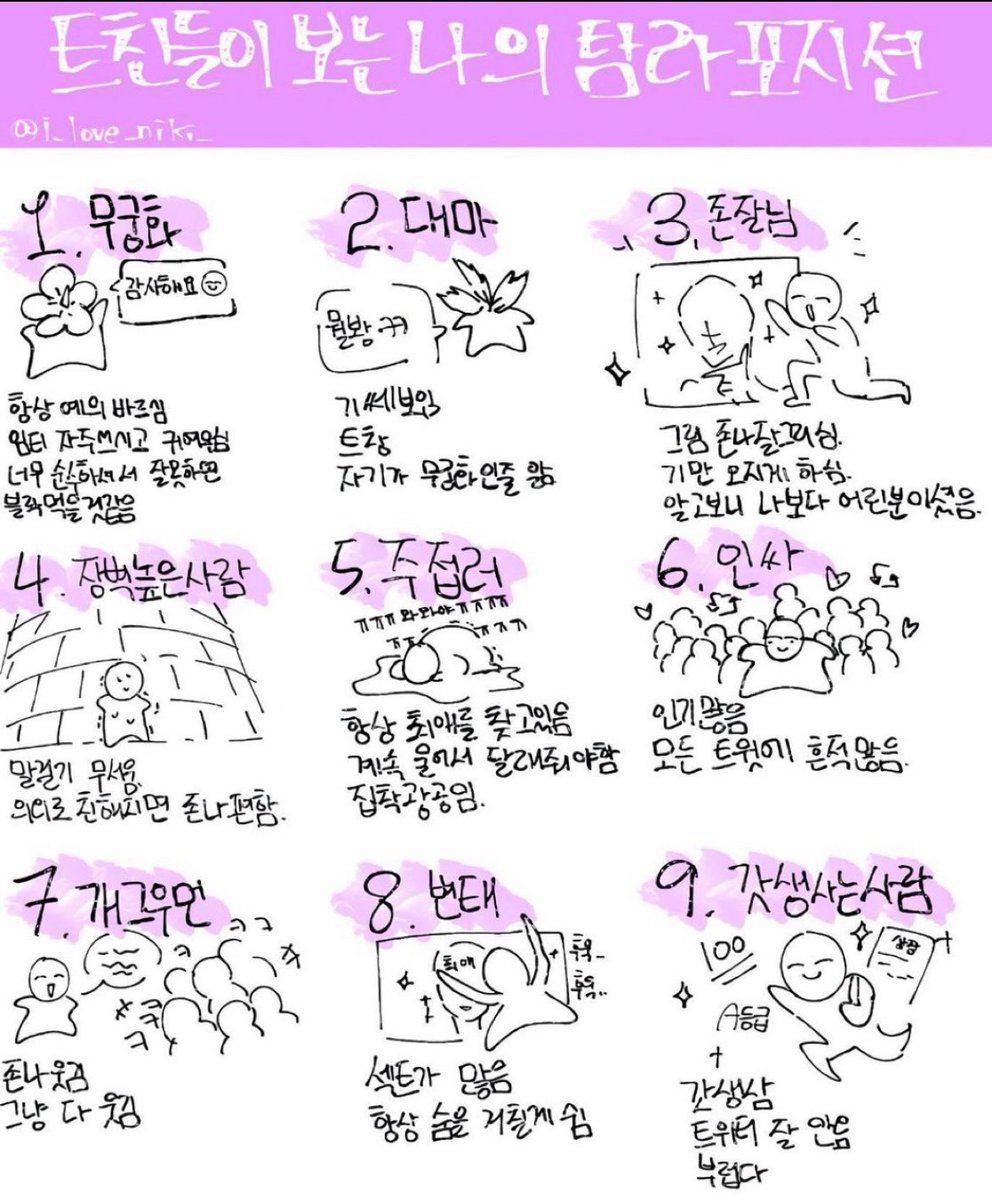 트친들이 보는 나의 탐라 포지션
@i_love_niki_
1. 무궁화
감사해요
항상 예의 바르심
웜티 자주쓰시고 귀여우심
너무 순수하셔서 잘못하면
불륙먹을것같음
2. 대마
뭘봐 ㅋㅋ
기 쎄보임
트창
자기가 무궁화인줄 앎
3. 존잘님
그림 존나잘그리심.
기만 오지게 하심.
알고보니 나보다 어린분이셨음.
4. 장벽높은사람
말걸기 무서움.
의외로 친해지면 존나편함.
5. 주접러
ㅠㅠㅠ 와와야 ㅠㅠㅠㅠ
ㅠㅠ ㅠㅠㅠ
항상 최애를 찾고있음
계속 울어서 달래줘야함
집착광공임.
6. 인싸
인기많음
모든 트윗에 흔적많음.
7. 개그우먼
ㅋㅋㅋ
ㅋ
ㅋ
ㅋ
존나웃김
그냥 다 웃김
8. 변태
최애
후욱..
후욱..
섹트가 많음
항상 숨을 거칠게 쉼
9. 갓생사는사람
100
상장
A등급
+
갓생삼
트위터 잘 안옴
부럽다